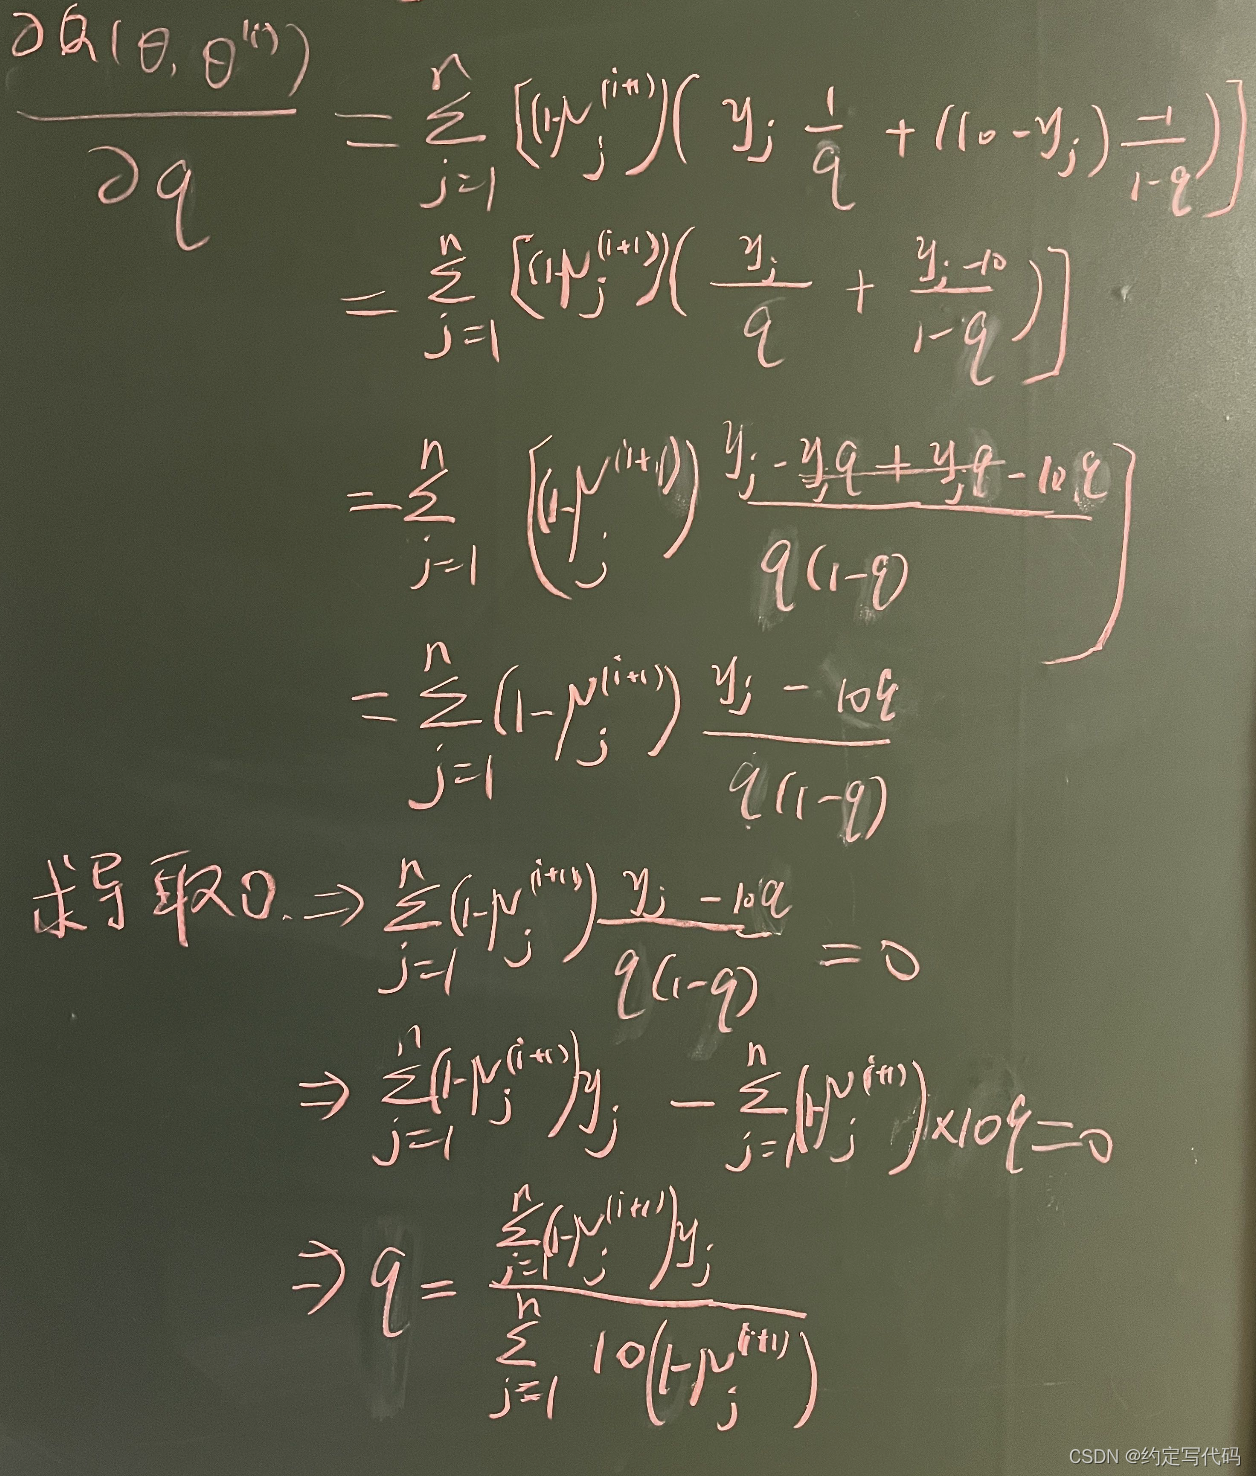 ∂Q(θ, θ^(i)) / ∂q = Σ_{j=1}^{n} [(1-μ_j^(i+1))( y_j 1/q + (10-y_j) -1/(1-q) )]
= Σ_{j=1}^{n} [(1-μ_j^(i+1))( y_j/q + (y_j-10)/(1-q) )]
= Σ_{j=1}^{n} [(1-μ_j^(i+1)) (y_j - y_jq + y_jq - 10q) / q(1-q)]
= Σ_{j=1}^{n} (1-μ_j^(i+1)) (y_j - 10q) / q(1-q)
求导取0. ⇒ Σ_{j=1}^{n} (1-μ_j^(i+1)) (y_j - 10q) / q(1-q) = 0
⇒ Σ_{j=1}^{n} (1-μ_j^(i+1)) y_j - Σ_{j=1}^{n} (1-μ_j^(i+1)) ×10q = 0
⇒ q = Σ_{j=1}^{n} (1-μ_j^(i+1)) y_j / Σ_{j=1}^{n} 10(1-μ_j^(i+1))
CSDN @约定写代码